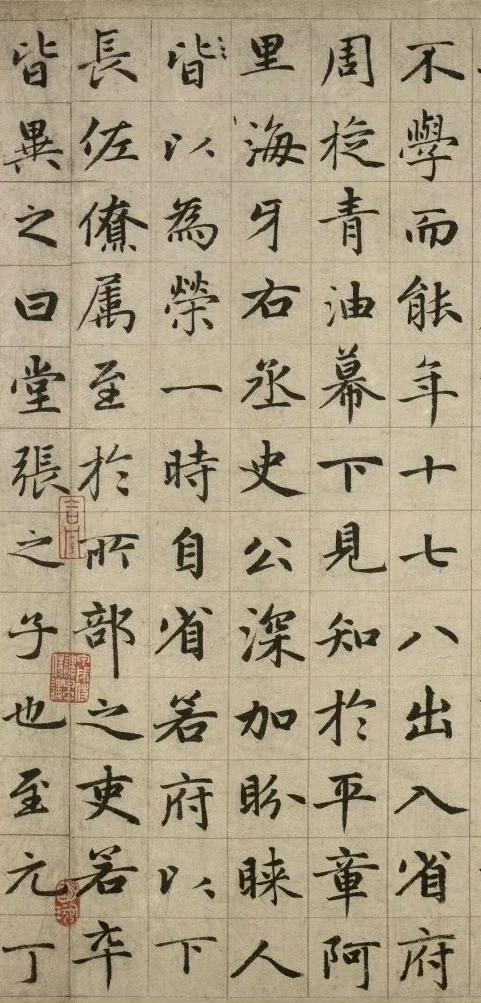 不學而能年十七八出入省府
周旋青油幕下見知於平章阿
里海牙右丞史公深加盼睞人
皆以為榮一時自省若府以下
長佐僚属至於所部之吏若卒
皆異之曰堂張之子也至元丁